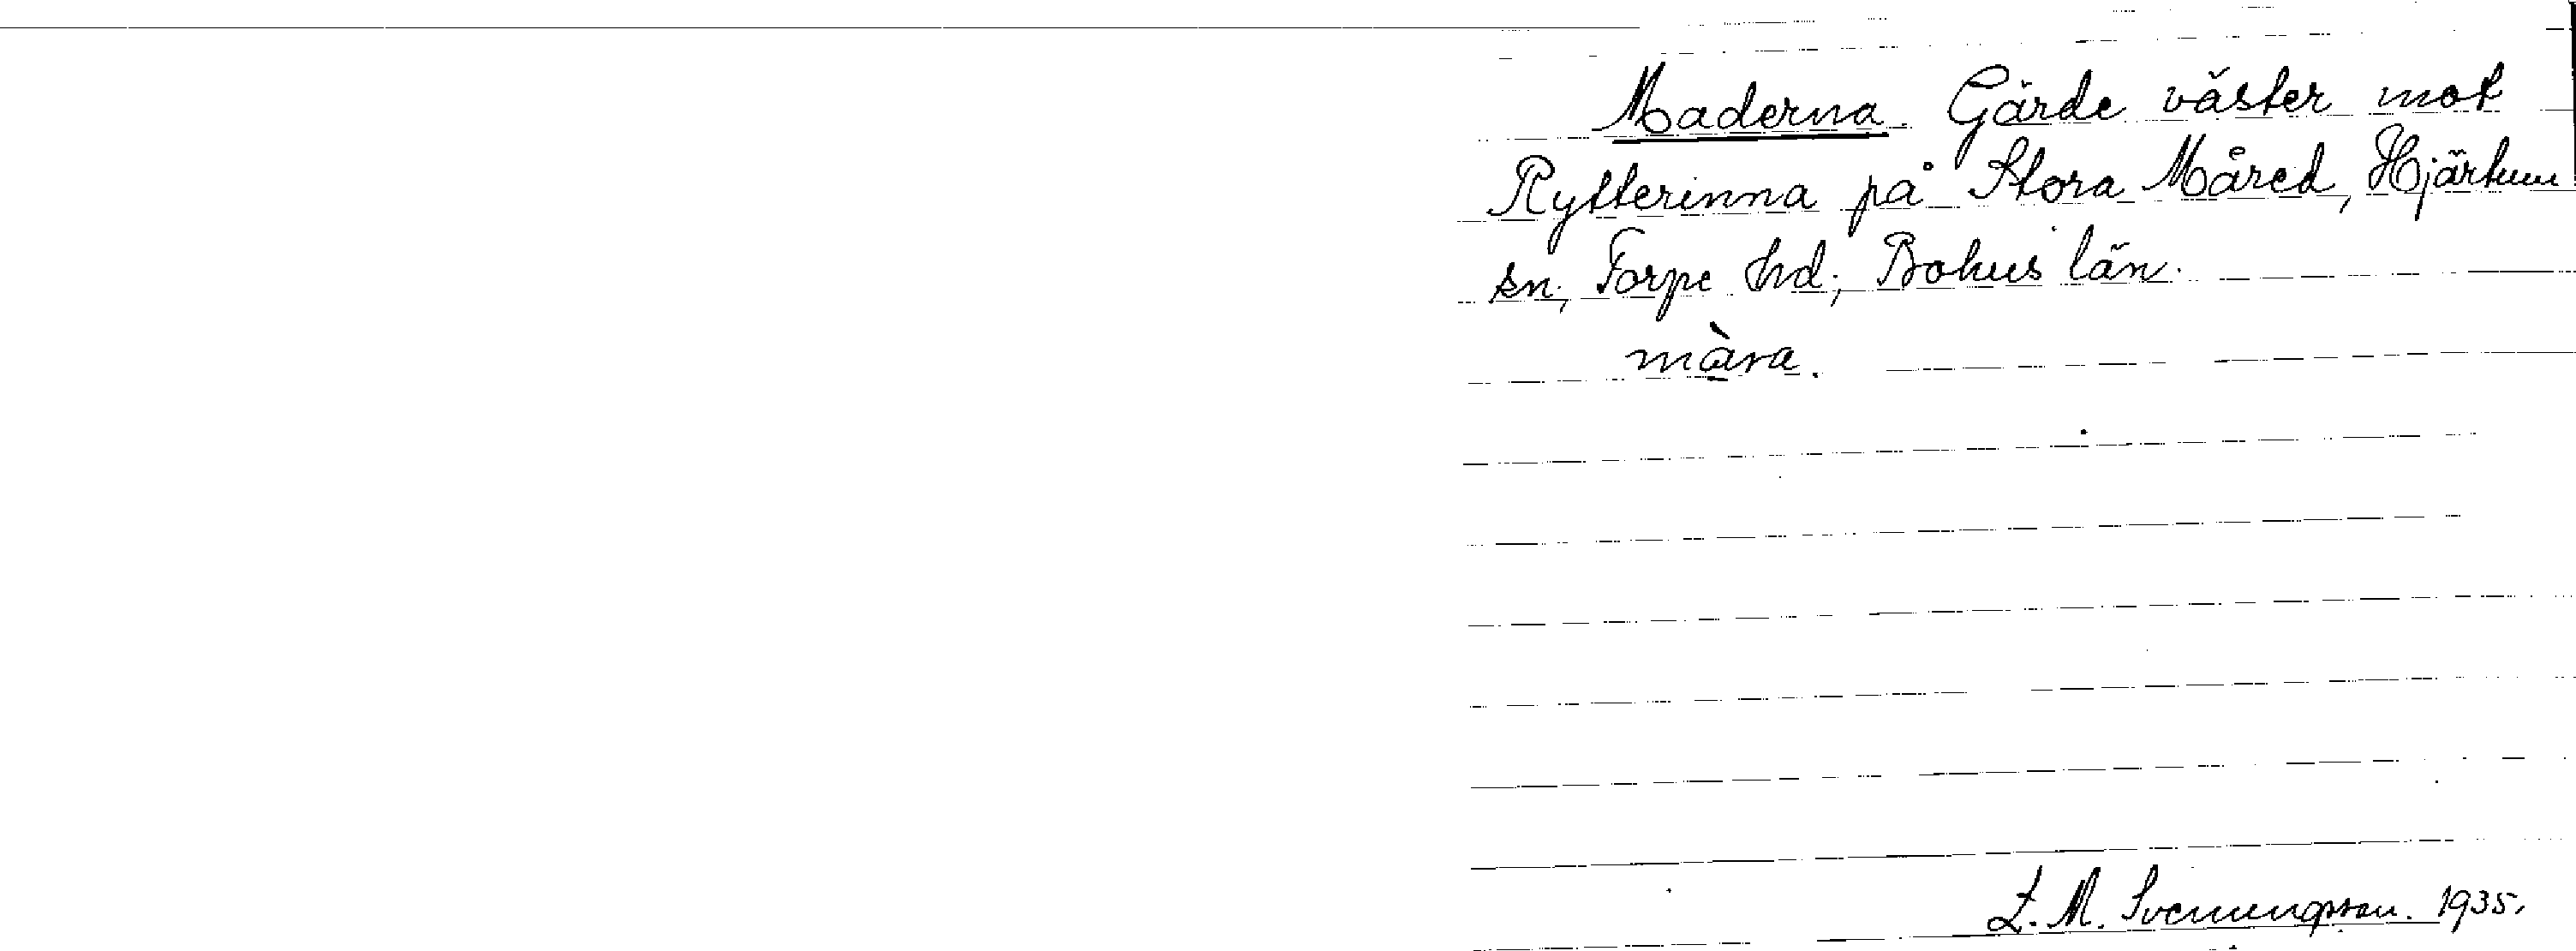 Maderna. Gärde väster mot
Rytterinna på Stora Måred, Hjärtum
sn, Torpe hd; Bohus län.
màra.
Z. M. Svenungsson. 1935.